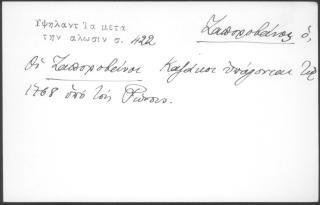 Υψηλαντ Τα μετα
την αλωσιν σ. 422
Ζαποροβάνος ὁ,
Οἱ Ζαποροβάνοι Καζάκοι ὑπάγονται
1768 ὑπὸ τοὺς Ρώσσους.